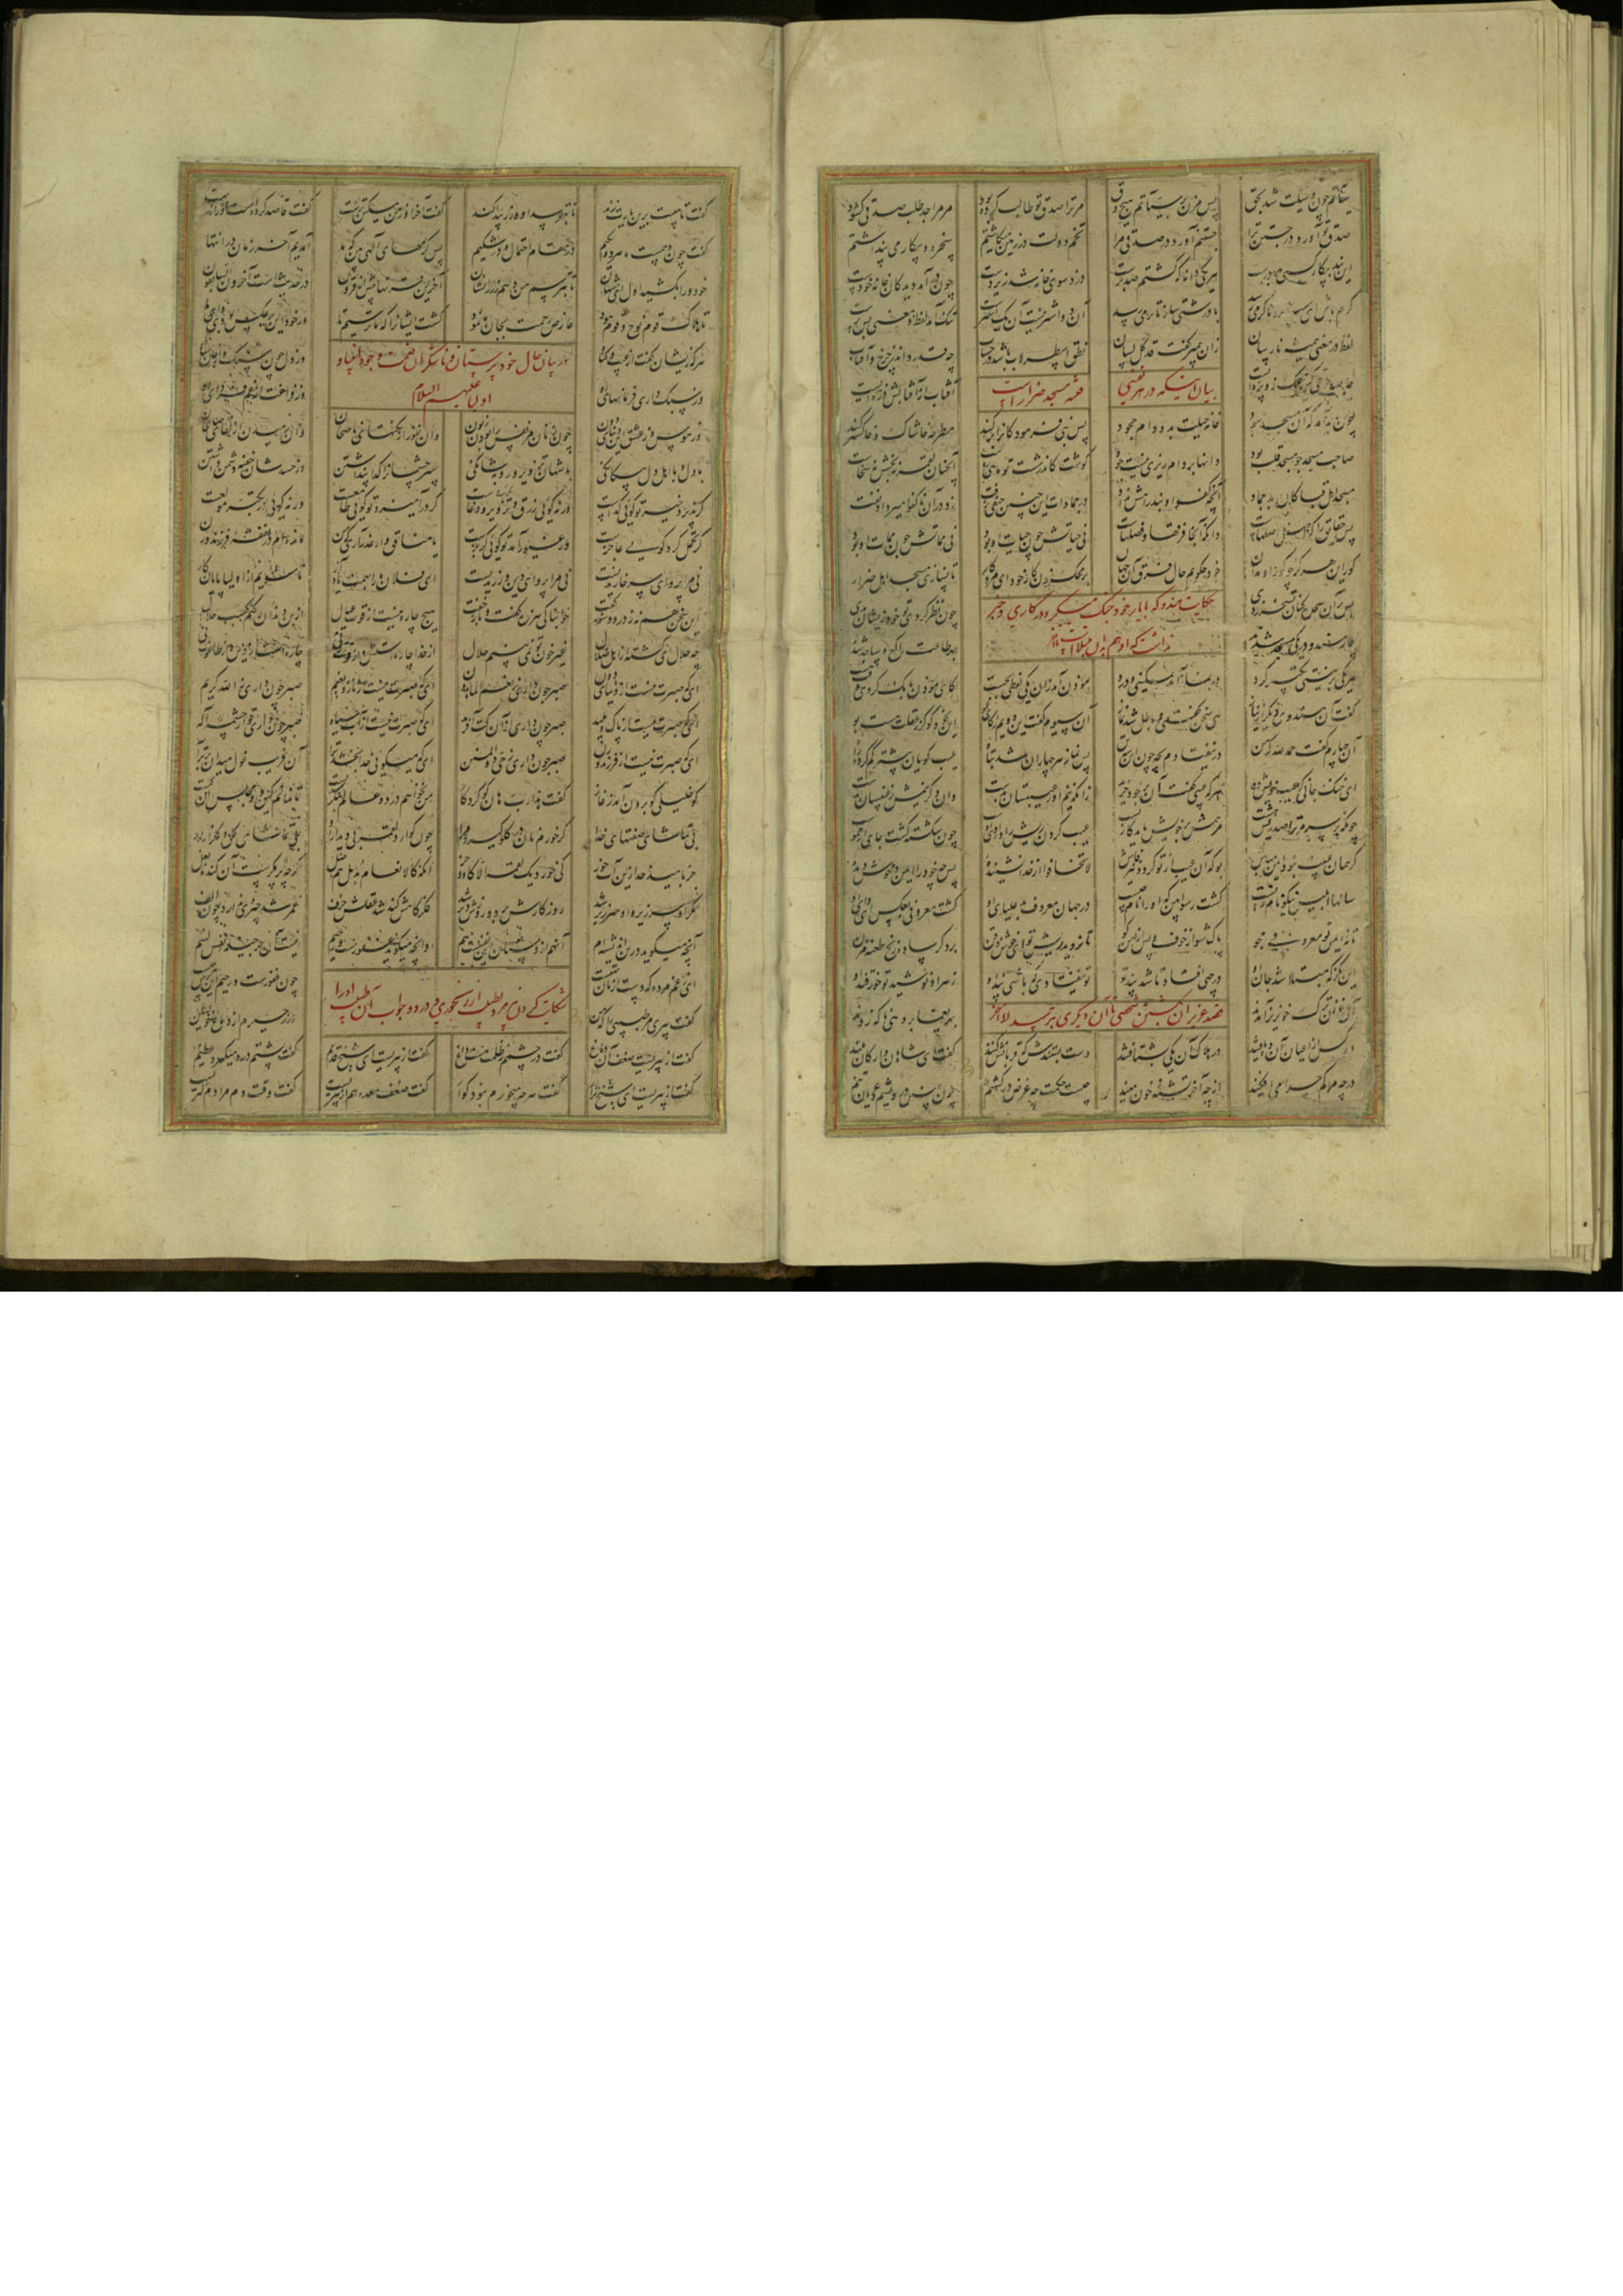 سیئاتم چون وسیلت شد بحق پس مزن بر سیئاتم هیچ دق مر ترا صدق تو طالب کرده بود مر مرا جد طلب صدقی گشود
صدق تو آورد در جستن ترا جستنم آورد در صدقی مرا تخم دولت در زمین میکاشتم سخره و بیکار می پنداشتم
این نبد بیکار کسبی بود هر یکی دانه که کشتم صد برست دزد سوی خانه شد زیر دست چون در آمد دید کان خانه خودست
گرم باش ای سرد تا گرمی رسد با درشتی ساز تا نرمی رسد آن دو اشتر نیست آن یک اشترست تنگ آمد لفظ و معنی بس پرست
لفظ در معنی همیشه نارسان زان پیمبر گفت قد کل لسان نطق اسطرلاب باشد در حساب چه قدر داند ز چرخ و آفتاب
آفتاب از آفتابش ذره ایست
بیان اینکه در هر نفسی فتنه مسجد ضرار است
چون پدید آمد که آن مسجد نبود خانه حیلت بد و دام جهود پس نبی فرمود کانرا برکنند مطرحه خاشاک و خاکستر کنند
صاحب مسجد چو مسجد قلب بود دانها بر دام ریزی نیست جود گوشت کاندر شست تو ماهی رباست آنچنان لقمه نه بخشش نه سخاست
مسجد اهل قبا کان بد جماد آنچه کفو او نبد راهش نداد در جمادات این چنین حیفی نرفت زد در آن ناکفو امیر داد نفت
پس حقایق را که اصل اصلهاست دانکه آنجا فرقها و فصلهاست نی حیاتش چون حیات او بود نی مماتش چون ممات او بود
گور این هرگز چو گور او مدان خود چگویم حال فرق آن جهان بر محک زن کار خود ای مرد کار تا نسازی مسجد اهل ضرار
پس بر آن مسجد کنان تسخر زدی چون نظر کردی تو خود زیشان بدی
حکایت هندو که با یار خود جنگ میکرد در کاری و خبر
نداشت که او هم بدان مبتلاست
چار هندو در یکی مسجد شدند بهر طاعت راکع و ساجد شدند
هر یکی بر نیتی تکبیر کرد در نماز آمد بمسکینی و درد موذن آمد زان یکی لفظی بجست کای موذن بانگ کردی وقت هست
گفت آن هندوی دیگر از نیاز هی سخن گفتی و باطل شد نماز آن سیوم گفت این دویم را
آن چهارم گفت حمد لله که من در نیفتادم بچه چون این سه تن پس نماز هر چهاران شد تباه عیب گویان بیشتر گم کرده راه
ای خنک جانی که عیب خویش دید هر که عیبی گفت آن بر خود خرید زانکه نیم او ز عیبستان بدست وان دگر نیمش ز غیبستان بدست
چونکه بر سر مر ترا صد ریش هست مرهمش بر خویش باید کار بست عیب کردن ریش را داروی اوست چون شکسته گشت جای ارحمواست
گر همان عیبت نبود ایمن مباش بوکه آن عیب از تو گردد نیز فاش لا تخافوا از خدا نشنیده پس چه خود را ایمن و خوش دیده
سالها ابلیس نیکو نام زیست گشت رسوا بین که او را نام چیست در جهان معروف بد علیای او گشت معروفی بعکس ای وای او
تا نه ایمن تو معروفی مجو پاک شو از خوف و پس بنمای رو تا نروید ریش تو ای خوش ذقن بر دگر ساده زنخ طعنه مزن
این نگر که مبتلا شد جان او در چهی افتاد تا شد پند تو تو نیفتادی که باشی پند او زهر او نوشید تو خور قند او
آن غزان ترک خونریز آمدند بهر یغما بر دهی ناگه زدند
قصد غزان کشتن شخصی تا آن دیگری بترسد
دو کس از اعیان آن ده یافتند در هلاک آن یکی بشتافتند دست بستندش که قربانش کنند گفت ای شاهان و ارکان بلند
در چه مرگم چرا می افکنید از چه آخر تشنه خون منید چیست حکمت چه غرض در کشتنم چون چنین درویشم و عریان تنم
گفت تا هیبت برین یارت زند تا بترسد او و زر پیدا کند گفت آخر او ز من مسکین ترست گفت قاصد کرده است او را زرست
گفت چون وهمست ما هر دو یکیم در مقام احتمال و در شکیم پس کرمهای الهی بین که ما آمدیم آخر زمان در انتها
خود ورا بکشید اول ای شهان تا بترسم من دهم زر را نشان آخرین قرنها پیش از قرون در حدیثست آخرون السابقون
تا هلاک قوم نوح و قوم هود عارض رحمت بجان ما نمود کشت ایشانرا که ما ترسیم ور خود این بر عکس
هر که زیشان گفت از عیب و گناه وز دل چون سنگ وز جان سیاه
در بیان حال خود پرستان و ناشکران نعمت وجود انبیا و
اولیا علیهم السلام
وز سبک داری فرمانهای او وز فراغت از غم فردای او
وز هوس وز عشق این دنیای دون چون زنان مر نفس را بودن زبون وان نفور از نکتهای ناصحان وان رمیدن از لقای صالحان
با دل و با اهل دل بیگانگی با شهان تزویر و روبه شانگی سیر چشمانرا گدا پنداشتن وز حسدشان خفیه دشمن داشتن
گر پذیرد خیر تو گویی گداست ورنه گویی زرق و تزویر و دغاست گر در آمیزد تو گویی طامعست ورنه گویی در تکبر مولعست
گر تحمل کرد گویی عاجزست ور غیور آمد تو گویی گربزست یا منافق وار عذر آری که من مانده ام در نفقه فرزند و زن
نی مرا پروای سر خاریدنست نی مرا پروای دین ورزیدنست ای فلان ما را بهمت یاد دار تا شویم از اولیا پایان کار
این سخن هم نه ز درد و سوز گفت خوابناکی هرزه گفت و باز خفت هیچ چاره نیست از قوت عیال از بن دندان کنم کسب حلال
چه حلال ای گشته از اهل ضلال غیر خون تو نمی بینم حلال از خدا چاره استش و از قوت نی
ای که صبرت نیست از دنیای دون صبر چون داری ز نعم الماهدون ای که صبرت نیست از ناز و نعیم صبر چون داری ز الله کریم
ای که صبرت نیست از پاک و پلید صبر چون داری از آن کت آفرید ای که صبرت نیست از آب سیاه صبر چون داری تو از چشمه اله
ای که صبرت نیست از فرزند و زن صبر چون داری ز حی ذوالمنن ای که میگویی خدا بخشد ترا آن فریب غول میدان برترا
کو خلیلی کو برون آمد ز غار گفت هذا رب هان کو کردگار من نخواهم در دو عالم بنگریست تا ندانم کین دو مجلس آن کیست
بی تماشای صفتهای خدا گر خورم نان در گلو گیرد مرا چون گوارد لقمه بی دیدار او بی تماشای گل و گلزار او
جز بامید خدا زین آب خور کی خورد یک لقمه الا گاو و خر آنکه کالانعام بد بل هم اضل گرچه پر مکرست آن گنده بغل
مکر او سر زیر و او سر زیر شد روزگارش برد و روزش دیر شد فکر گاهش کند شد عقلش خرف عمر شد چیزی ندارد چون الف
آنچه میگوید درین اندیشه ام آنهم از دستان این نفس است هم وانچه میگوید غفورست و رحیم نیست آن جز حیله نفس لئیم
ای ز غم مرده که دست از نان تهیست چون غفورست و رحیم این ترس چیست
شکایت گفتن پیر مرد با طبیب از رنجوری خود و جواب آن طبیب او را
گفت پیری مر طبیبی را که من در زحیرم از دماغ خویشتن
گفت از پیریست ضعف آن دماغ گفت در چشمم ز ظلمت هست داغ گفت از پیریست ای شیخ قدیم گفت پشتم درد میکرد عظیم
گفت از پیریست ای شیخ نزار گفت هر چه میخورم نبود گوار گفت ضعف معده هم از پیریست گفت وقت دم مرا دم گیریست